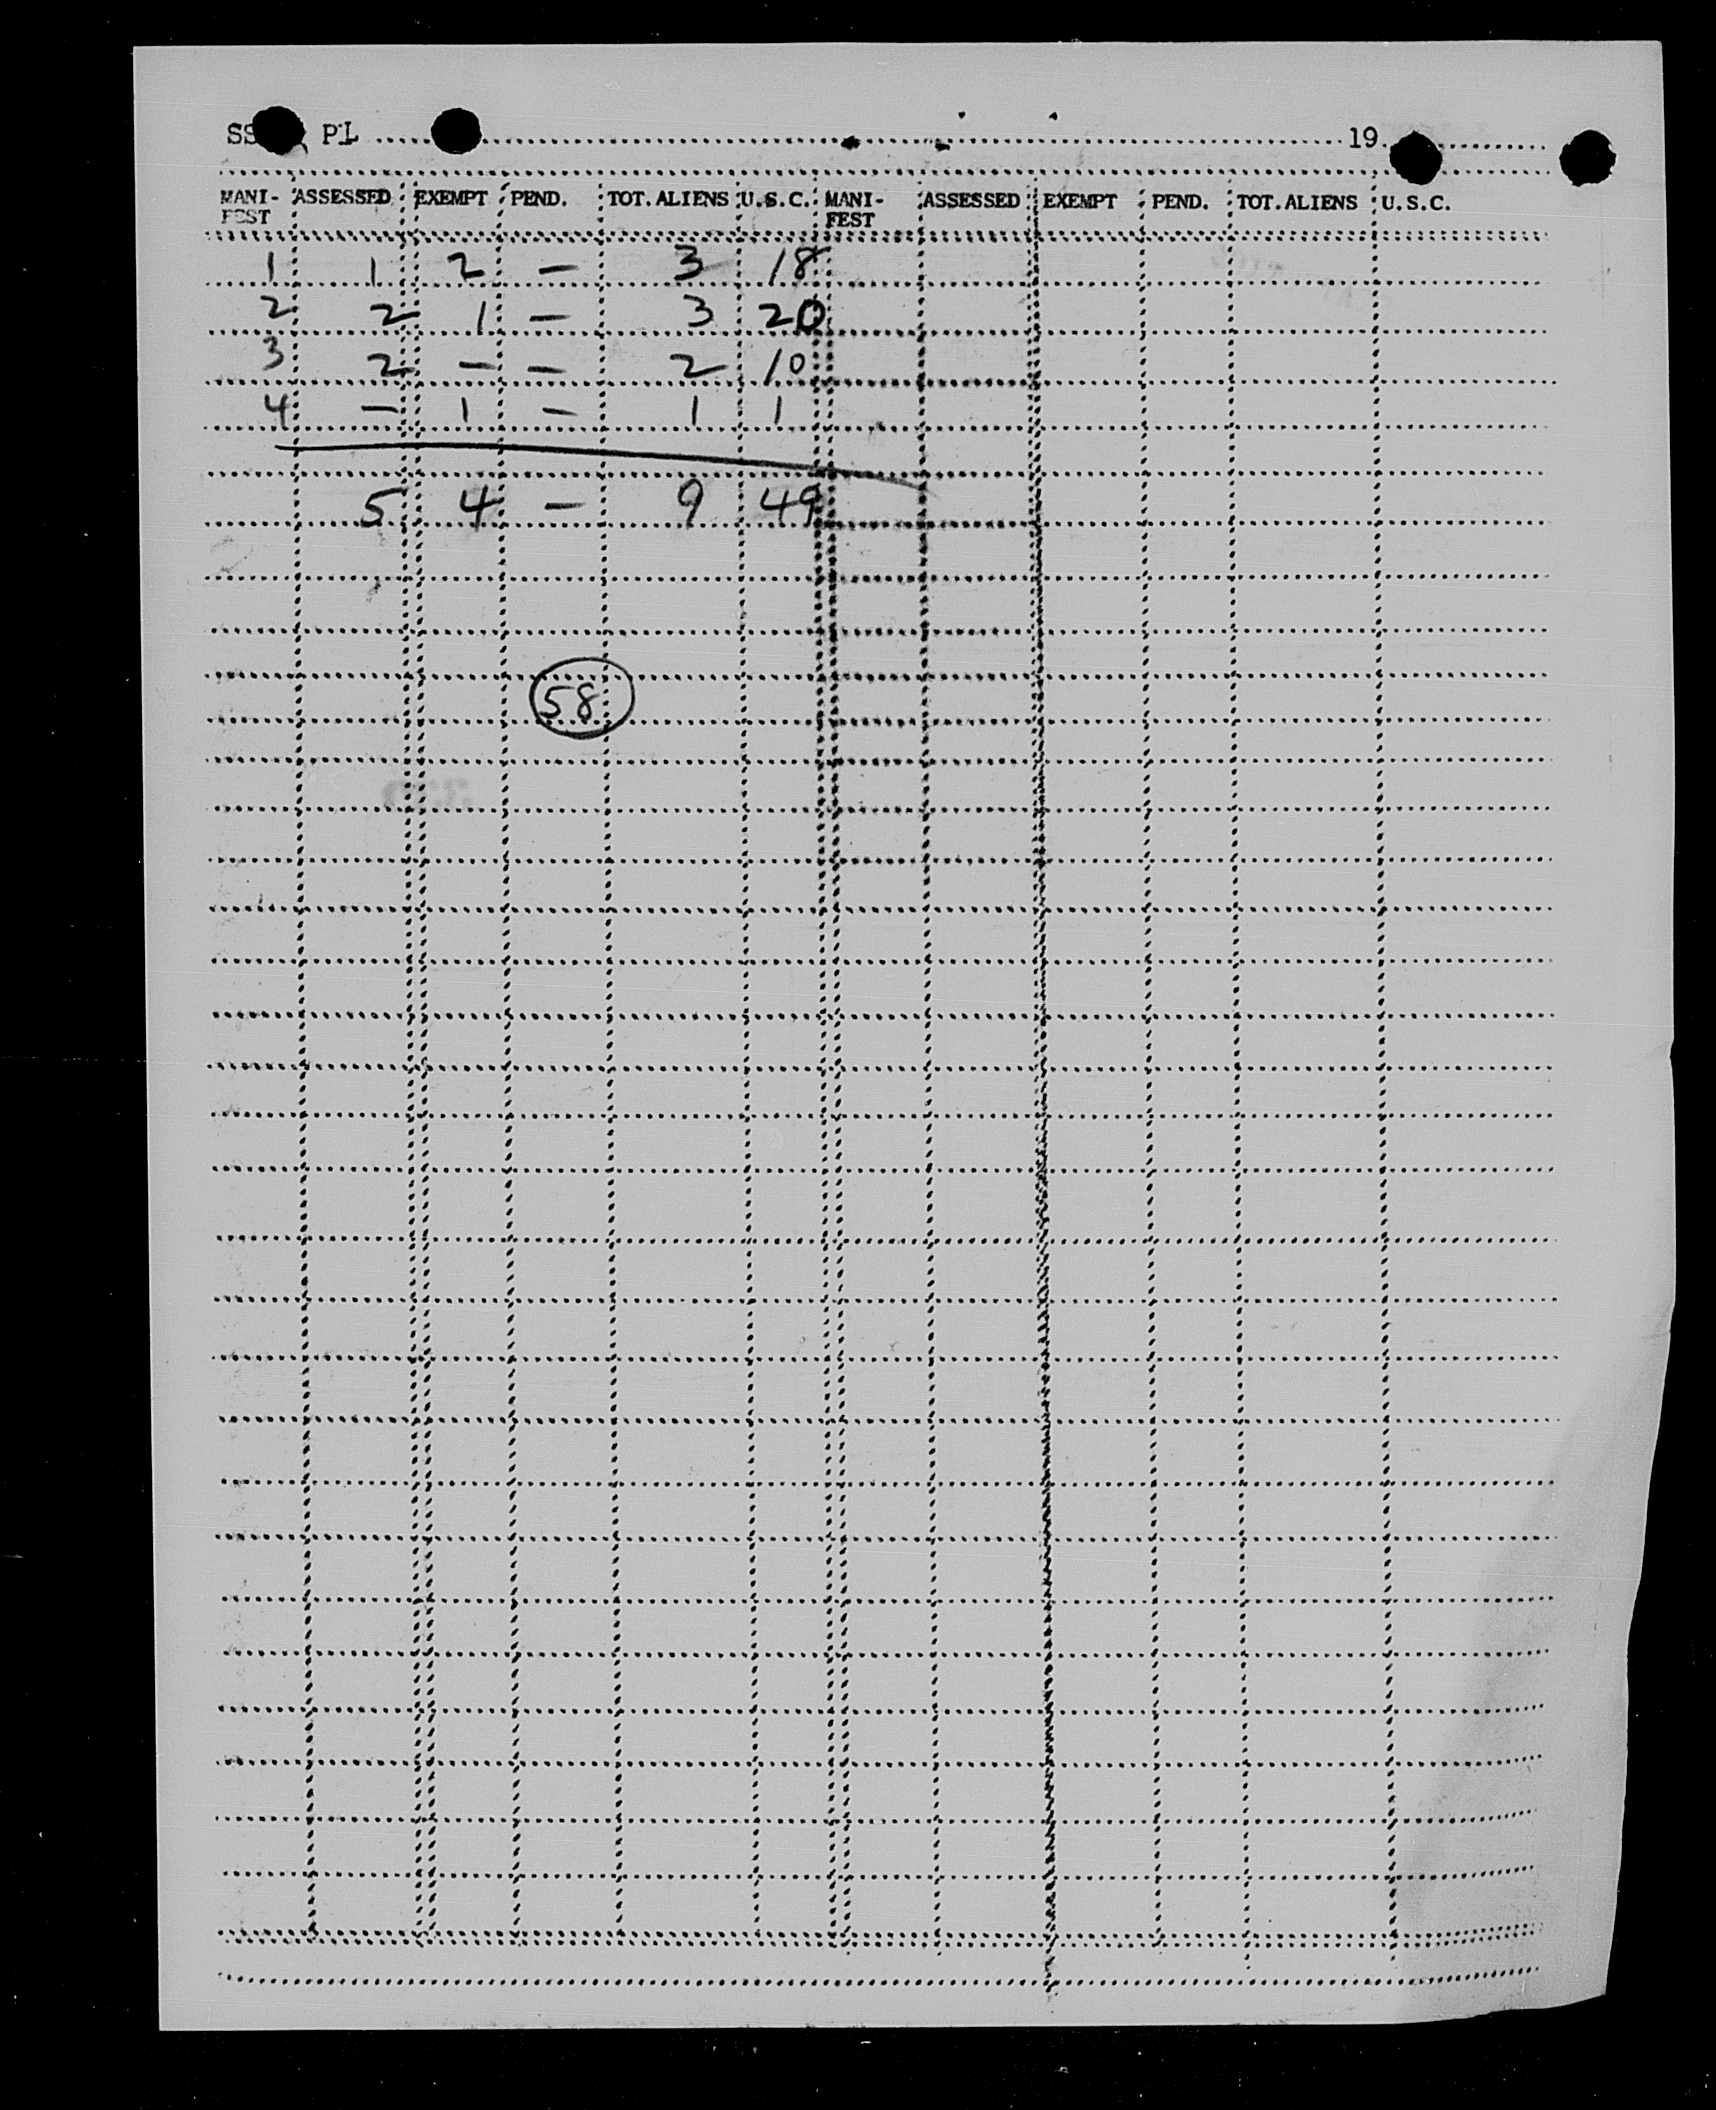 SS PL 19
MANI- ASSESSED EXEMPT PEND. TOT. ALIENS U.S.C. MANI- ASSESSED EXEMPT PEND. TOT. ALIENS U.S.C.
FEST FEST
1 1 2 - 3 18
2 2 1 - 3 20
3 2 - - 2 10
4 - 1 - 1 1
5 4 - 9 49
58